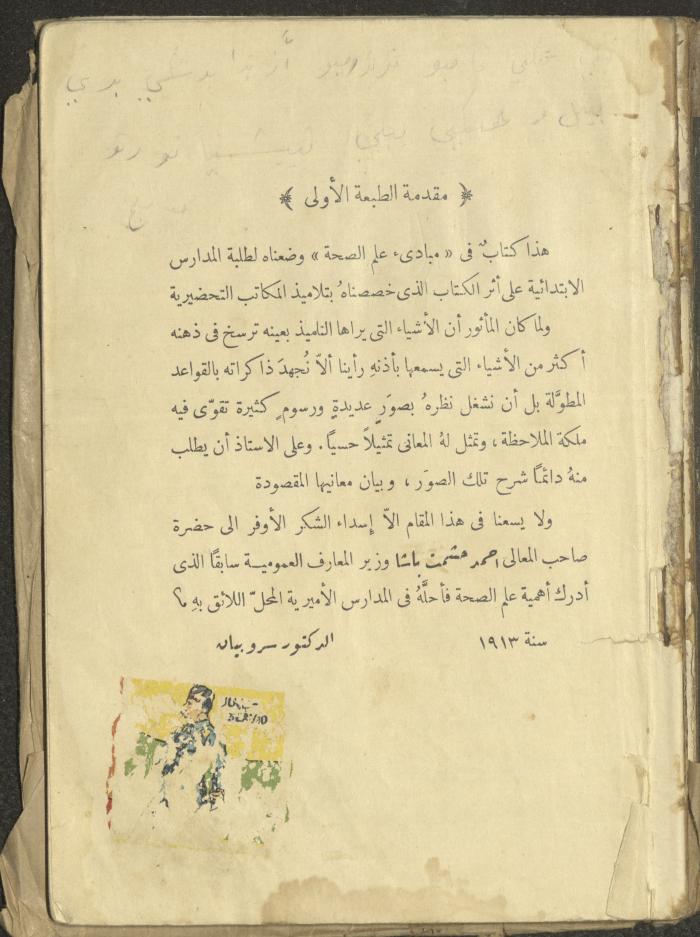 مقدمة الطبعة الأولى
هذا كتابٌ فى « مبادىء علم الصحة » وضعناه لطلبة المدارس
الابتدائية على أثر الكتاب الذى خصصناهُ بتلاميذ المكاتب التحضيرية
ولما كان المأثور أن الأشياء التى يراها التلميذ بعينه ترسخ فى ذهنه
أكثر من الأشياء التى يسمعها بأذنهِ رأينا ألاّ نُجهدَ ذاكراته بالقواعد
المطوَّلة بل أن نشغل نظرهُ بصوَرٍ عديدةٍ ورسومٍ كثيرة تقوّى فيه
ملكة الملاحظة ، وتمثل لهُ المعانى تمثيلاً حسيًا . وعلى الاستاذ أن يطلب
منهُ دائمًا شرح تلك الصوَر ، وبيان معانيها المقصودة
ولا يسعنا فى هذا المقام الاّ إسداء الشكر الأوفر الى حضرة
صاحب المعالى احمد حشمت باشا وزير المعارف العموميـة سابقًا الذى
أدرك أهمية علم الصحة فأحلَّهُ فى المدارس الأميرية المحلّ اللائق بهِ م؟
سنة ١٩١٣ الدكتور سروبيان